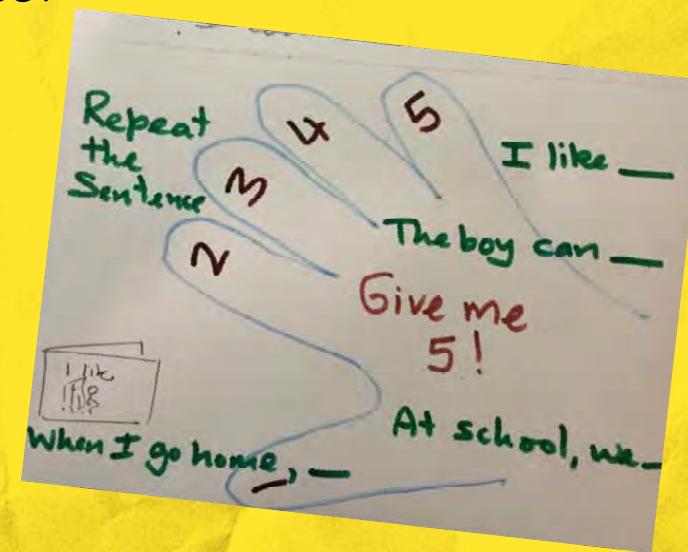 Repeat
the
Sentence
4
5
3
2
I like __
The boy can __
Give me
5!
I like
At school, we __
When I go home, __
1